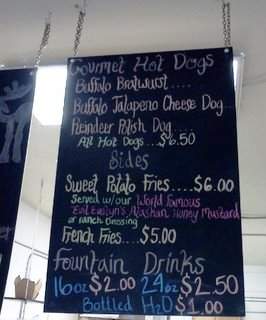 Gourmet Hot Dogs
Buffalo Bratwurst....
Buffalo Jalapeno Cheese Dog...
Reindeer Polish Dog....
All Hot Dogs...$6.50
Sides
Sweet Potato Fries....$6.00
Served w/our World Famous
Eat Evelyn's Alaskan Honey Mustard
or ranch Dressing
French Fries....$5.00
Fountain Drinks
16oz $2.00 24oz $2.50
Bottled H2O $1.00